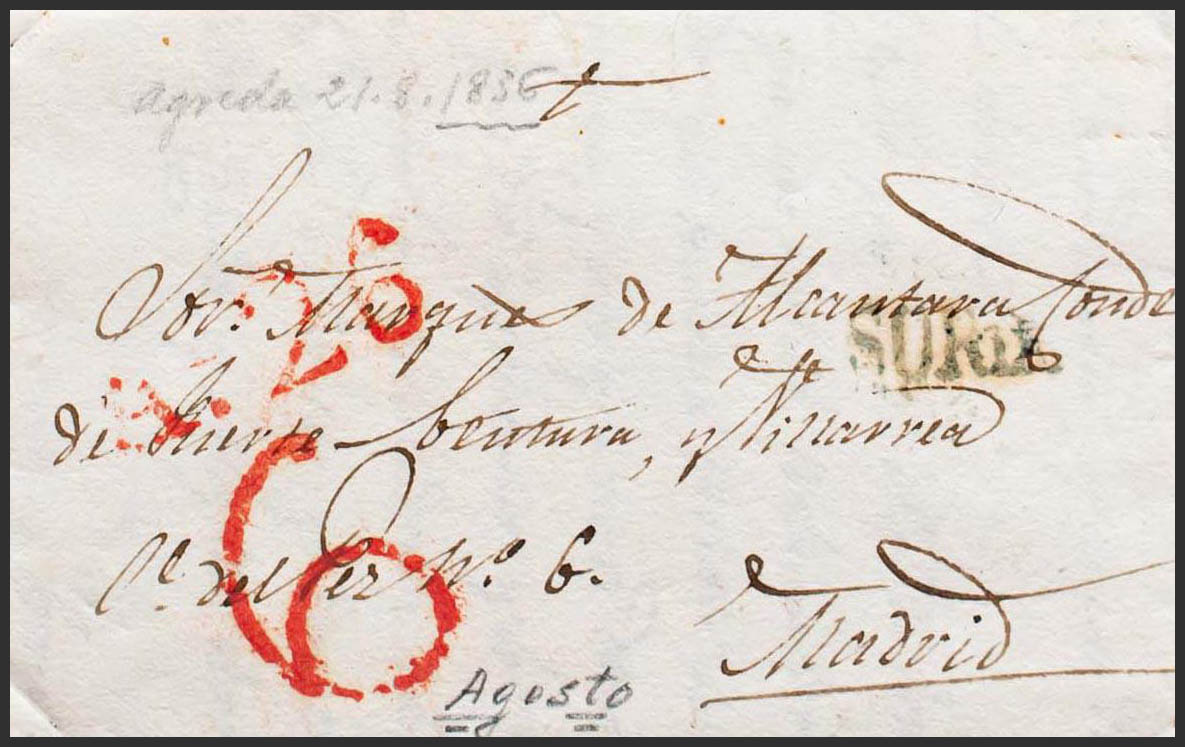 Agreda 21.8.1836
Sor. Marques de Alcantara Conde
SORIA
de Fuerte Ventura, y Villarreal
Ce. del Pez No. 6.
6
Madrid
Agosto